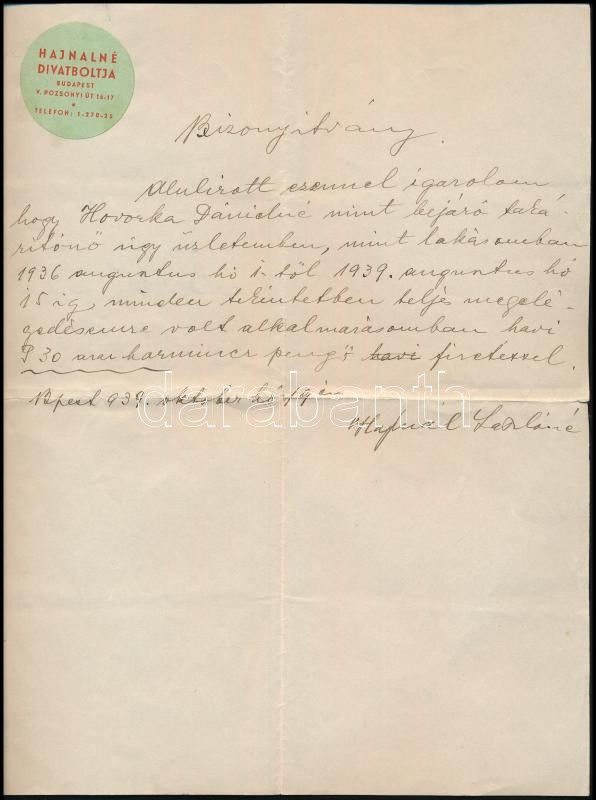 HAJNALNÉ
DIVATBOLTJA
BUDAPEST
V. POZSONYI ÚT 15-17
TELEFON: 1-270-25
Bizonyitvány.
Alulirott ezennel igazolom
hogy Hovorka Dánielné mint bejáró taka-
ritónő úgy üzletemben, mint lakásomban
1936 augustus hó 1-től 1939. augustus hó
15 ig, minden tekintetben teljes megelé-
gedésemre volt alkalmazásomban havi
P 30 azaz harmincz pengő havi fizetéssel.
Bpest 939. oktober hó 19 én
Hajnál Lászlóné
darabanth